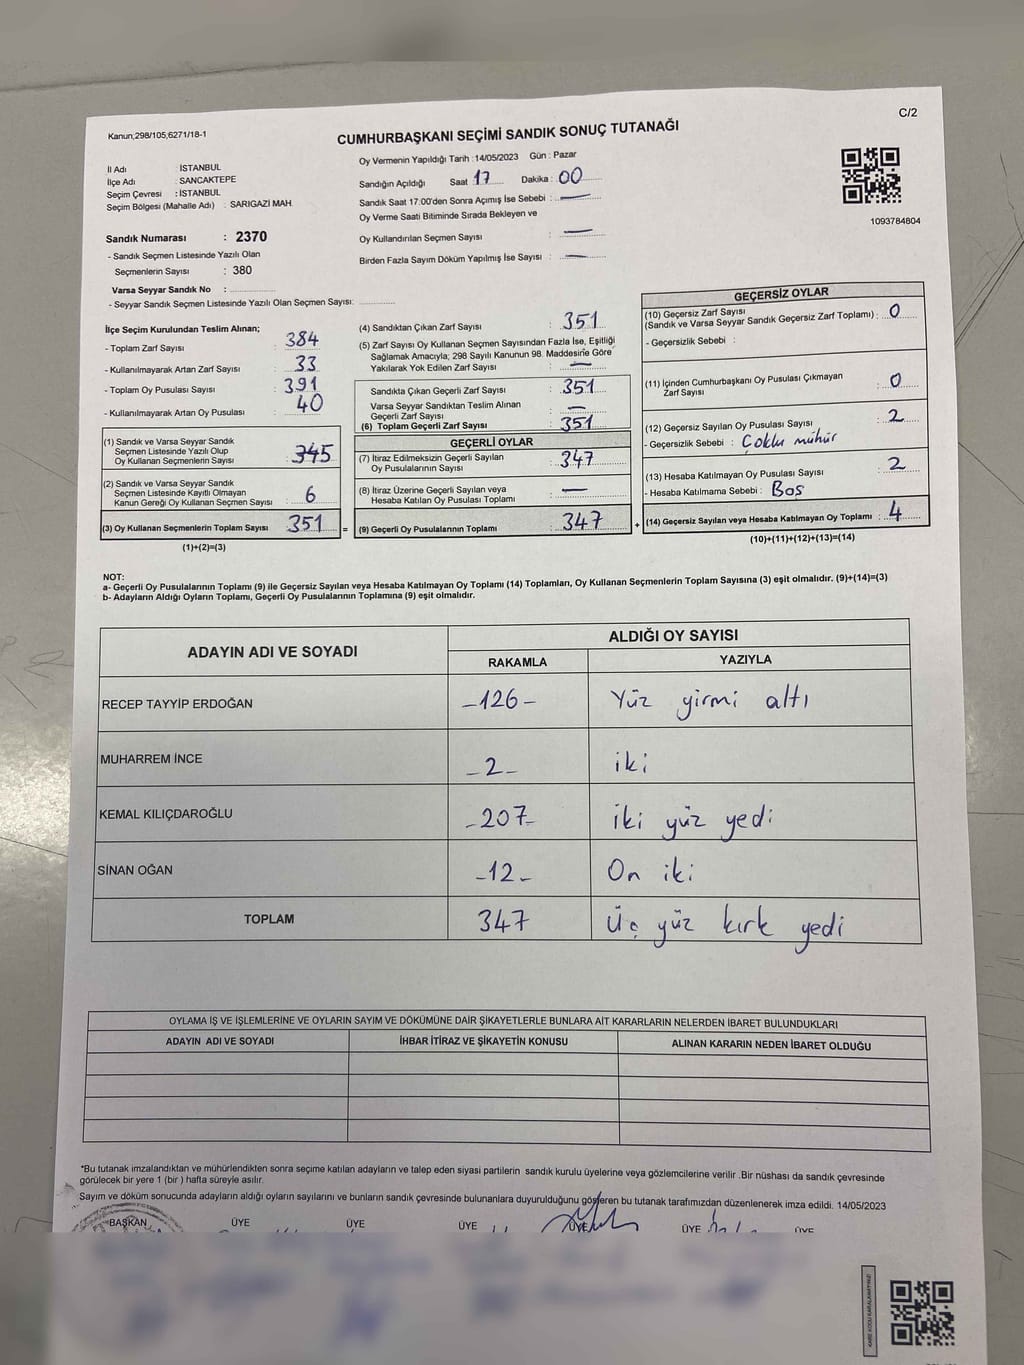 C/2
Kanun,298/105,6271/18-1
CUMHURBAŞKANI SEÇİMİ SANDIK SONUÇ TUTANAĞI
İl Adı : İSTANBUL
İlçe Adı : SANCAKTEPE
Seçim Çevresi : İSTANBUL
Seçim Bölgesi (Mahalle Adı) : SARIGAZİ MAH.
Sandık Numarası : 2370
- Sandık Seçmen Listesinde Yazılı Olan
Seçmenlerin Sayısı : 380
Varsa Seyyar Sandık No :
- Seyyar Sandık Seçmen Listesinde Yazılı Olan Seçmen Sayısı:
Oy Vermenin Yapıldığı Tarih :14/05/2023 Gün : Pazar
Sandığın Açıldığı Saat 17 Dakika : 00
Sandık Saat 17:00'den Sonra Açımış İse Sebebi : —
Oy Verme Saati Bitiminde Sırada Bekleyen ve
Oy Kullandırılan Seçmen Sayısı : —
Birden Fazla Sayım Döküm Yapılmış İse Sayısı : —
1093784804
İlçe Seçim Kurulundan Teslim Alınan;
- Toplam Zarf Sayısı : 384
- Kullanılmayarak Artan Zarf Sayısı : 33
- Toplam Oy Pusulası Sayısı : 391
- Kullanılmayarak Artan Oy Pusulası : 40
(1) Sandık ve Varsa Seyyar Sandık
Seçmen Listesinde Yazılı Olup
Oy Kullanan Seçmenlerin Sayısı : 345
(2) Sandık ve Varsa Seyyar Sandık
Seçmen Listesinde Kayıtlı Olmayan
Kanun Gereği Oy Kullanan Seçmen Sayısı : 6
(3) Oy Kullanan Seçmenlerin Toplam Sayısı : 351 =
(1)+(2)=(3)
(4) Sandıktan Çıkan Zarf Sayısı : 351
(5) Zarf Sayısı Oy Kullanan Seçmen Sayısından Fazla İse, Eşitliği
Sağlamak Amacıyla; 298 Sayılı Kanunun 98. Maddesine Göre
Yakılarak Yok Edilen Zarf Sayısı : —
Sandıkta Çıkan Geçerli Zarf Sayısı : 351
Varsa Seyyar Sandıktan Teslim Alınan
Geçerli Zarf Sayısı : —
(6) Toplam Geçerli Zarf Sayısı : 351
GEÇERLİ OYLAR
(7) İtiraz Edilmeksizin Geçerli Sayılan
Oy Pusulalarının Sayısı : 347
(8) İtiraz Üzerine Geçerli Sayılan veya
Hesaba Katılan Oy Pusulası Toplamı : —
(9) Geçerli Oy Pusulalarının Toplamı : 347 +
GEÇERSİZ OYLAR
(10) Geçersiz Zarf Sayısı
(Sandık ve Varsa Seyyar Sandık Geçersiz Zarf Toplamı) : 0
- Geçersizlik Sebebi :
(11) İçinden Cumhurbaşkanı Oy Pusulası Çıkmayan
Zarf Sayısı : 0
(12) Geçersiz Sayılan Oy Pusulası Sayısı : 2
- Geçersizlik Sebebi : Çoklu mühür
(13) Hesaba Katılmayan Oy Pusulası Sayısı : 2
- Hesaba Katılmama Sebebi : Boş
(14) Geçersiz Sayılan veya Hesaba Katılmayan Oy Toplamı : 4
(10)+(11)+(12)+(13)=(14)
NOT:
a- Geçerli Oy Pusulalarının Toplamı (9) ile Geçersiz Sayılan veya Hesaba Katılmayan Oy Toplamı (14) Toplamları, Oy Kullanan Seçmenlerin Toplam Sayısına (3) eşit olmalıdır. (9)+(14)=(3)
b- Adayların Aldığı Oyların Toplamı, Geçerli Oy Pusulalarının Toplamına (9) eşit olmalıdır.
ADAYIN ADI VE SOYADI
ALDIĞI OY SAYISI
RAKAMLA YAZIYLA
RECEP TAYYİP ERDOĞAN -126- Yüz girmi altı
MUHARREM İNCE -2- iki
KEMAL KILIÇDAROĞLU -207- iki yüz yedi
SİNAN OĞAN -12- On iki
TOPLAM 347 Üç yüz kırk yedi
OYLAMA İŞ VE İŞLEMLERİNE VE OYLARIN SAYIM VE DÖKÜMÜNE DAİR ŞİKAYETLERLE BUNLARA AİT KARARLARIN NELERDEN İBARET BULUNDUKLARI
ADAYIN ADI VE SOYADI İHBAR İTİRAZ VE ŞİKAYETİN KONUSU ALINAN KARARIN NEDEN İBARET OLDUĞU
*Bu tutanak imzalandıktan ve mühürlendikten sonra seçime katılan adayların ve talep eden siyasi partilerin sandık kurulu üyelerine veya gözlemcilerine verilir .Bir nüshası da sandık çevresinde
görülecek bir yere 1 (bir ) hafta süreyle asılır.
Sayım ve döküm sonucunda adayların aldığı oyların sayılarını ve bunların sandık çevresinde bulunanlara duyurulduğunu gösteren bu tutanak tarafımızdan düzenlenerek imza edildi. 14/05/2023
BAŞKAN ÜYE ÜYE ÜYE ÜYE ÜYE ÜYE